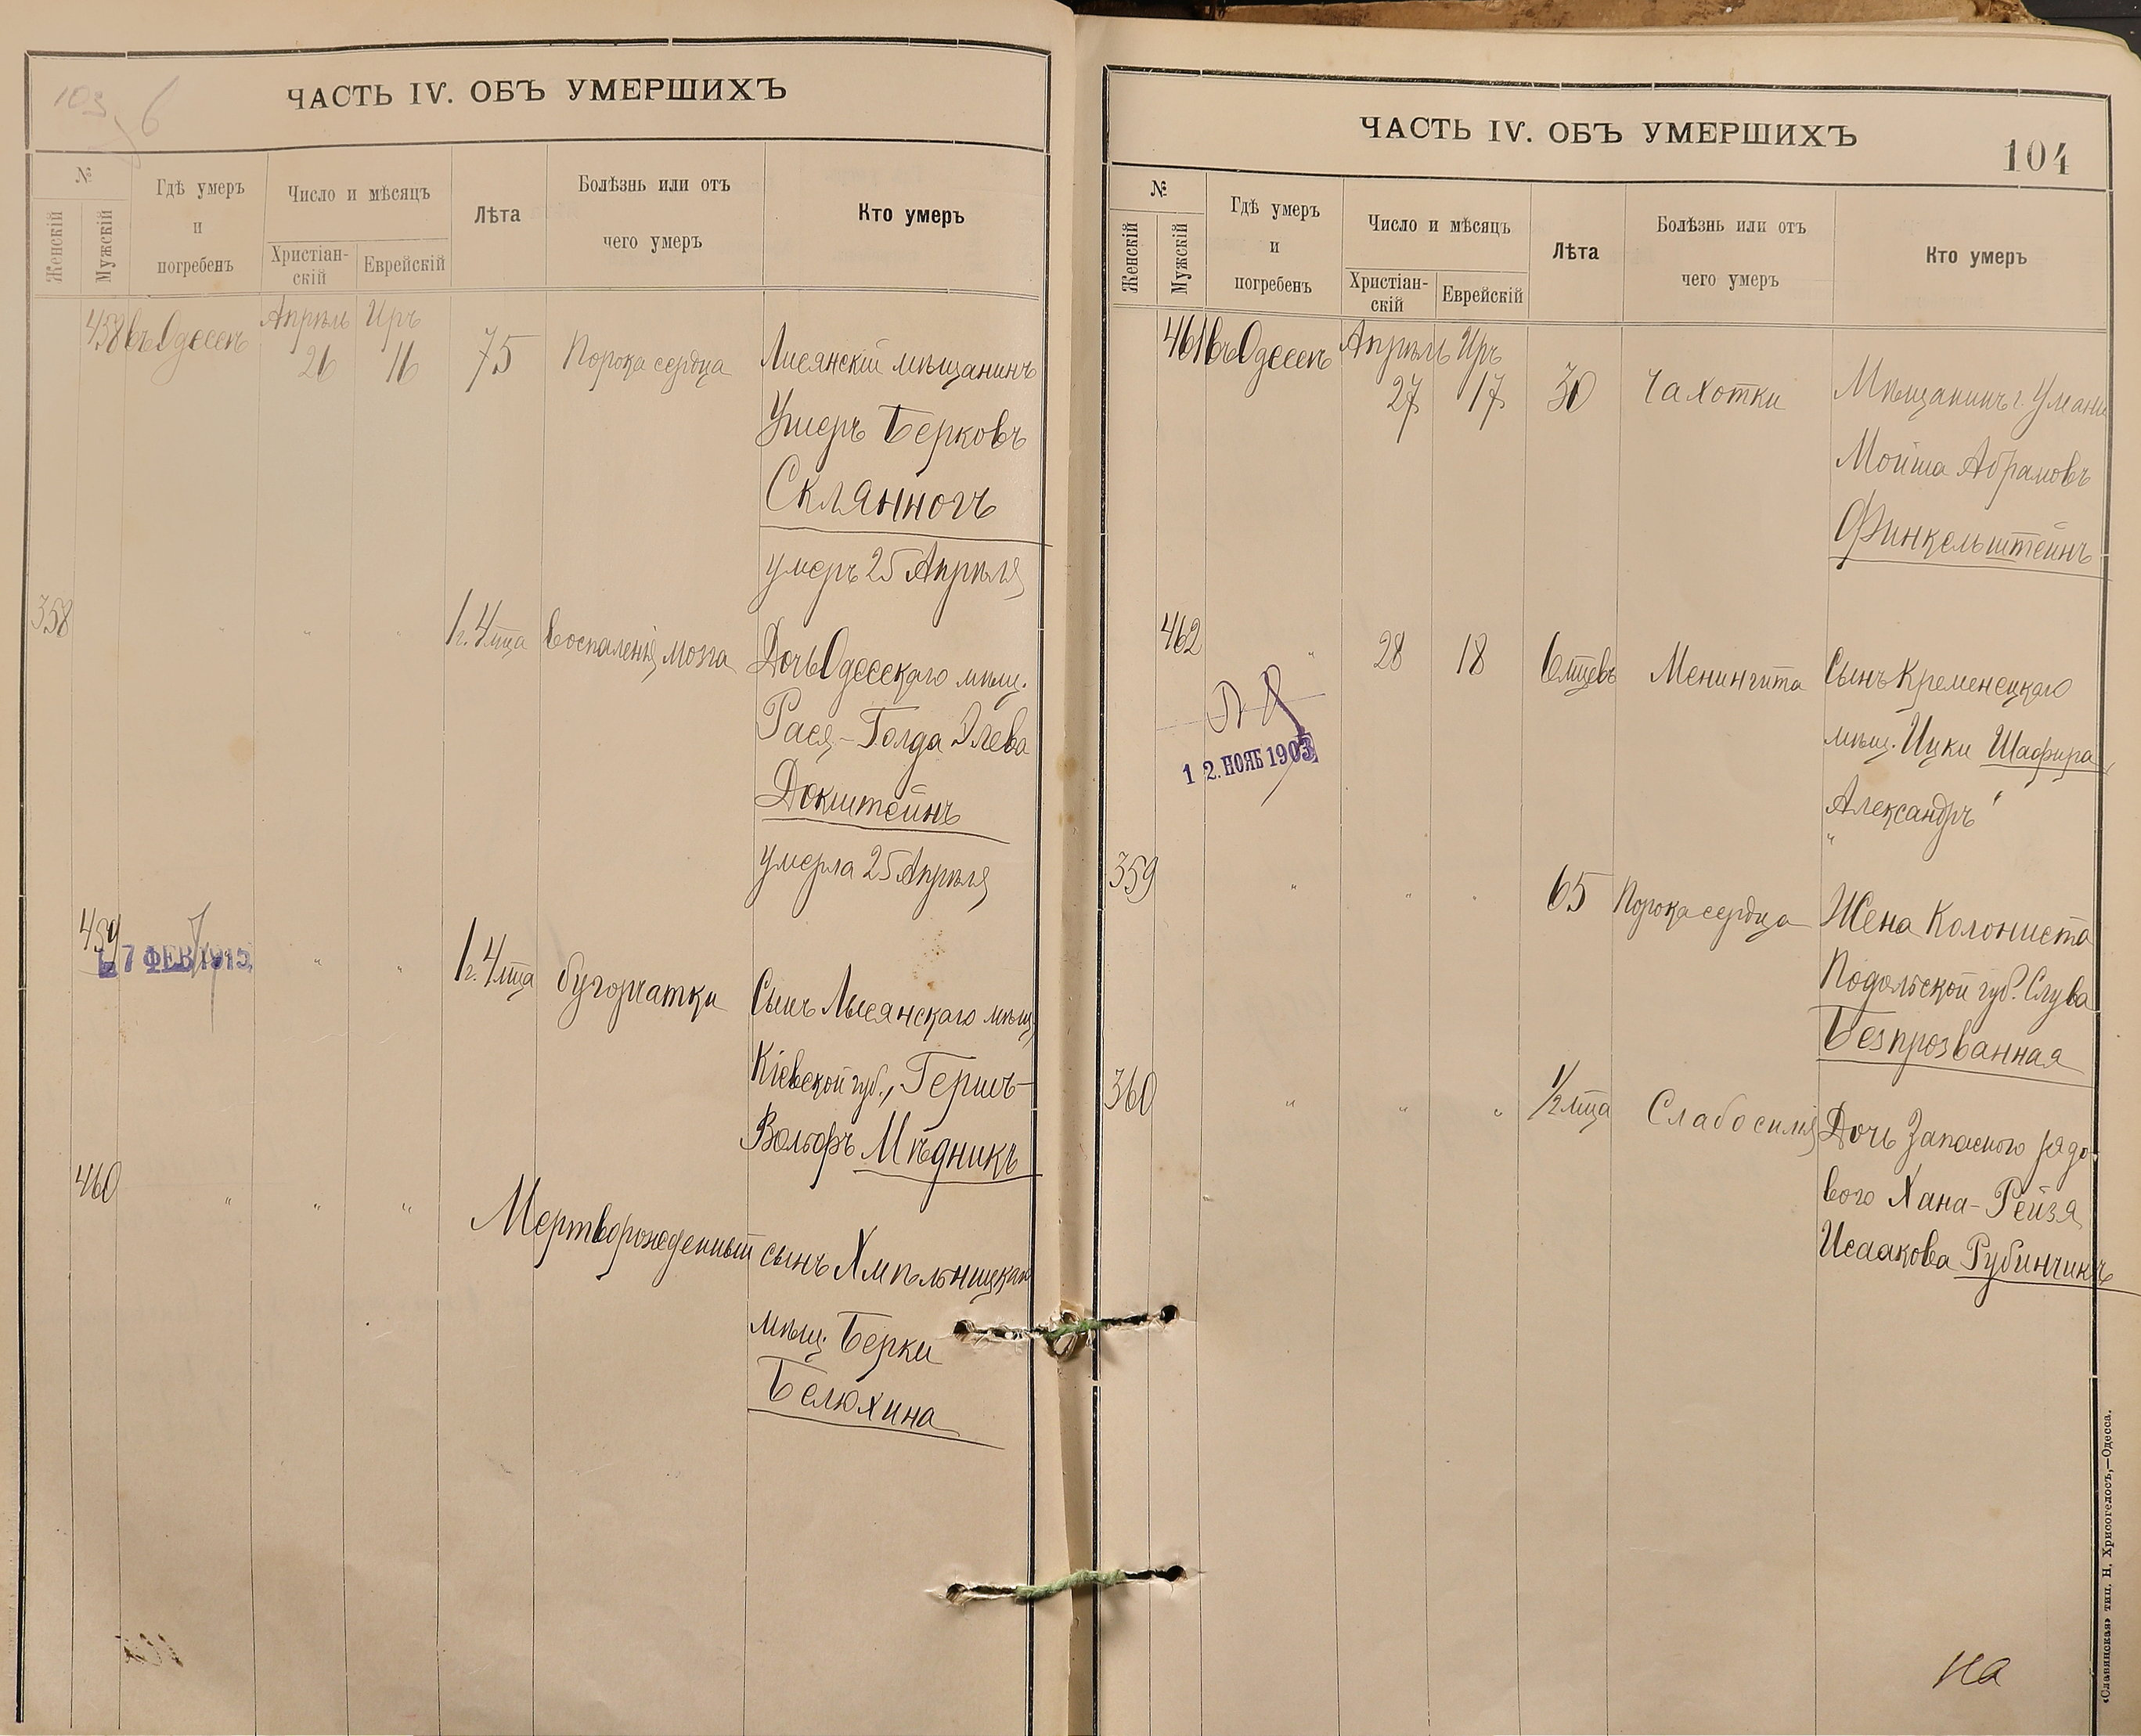 103
6
ЧАСТЬ IV. ОБЪ УМЕРШИХЪ
№
Женскій
Мужскій
Гдѣ умеръ
и
погребенъ
Число и мѣсяцъ
Христіан-
скій
Еврейскій
Лѣта
Болѣзнь или отъ
чего умеръ
Кто умеръ
458 въ Одессѣ Апрѣль Иръ
26 16 75 Порока сердца Лисянскій мѣщанинъ
Ушеръ Берковъ
Склянногъ
умеръ 25 Апрѣля
358 " " " 1 г. 4 мца Воспаленія мозга Дочь Одесскаго мѣщ.
Рася-Голда Элева
Докштейнъ
умерла 25 Апрѣля
459 " " 1 г. 4 мца бугорчатки Сынъ Лысянскаго мѣщ.
7 ФЕВ 1915
Кіевской губ., Гершъ-
Вольфъ Мѣдникъ
460 " " " Мертворожденный сынъ Хмѣльницкаго
мѣщ. Берки
Белюхина
ЧАСТЬ IV. ОБЪ УМЕРШИХЪ
104
№
Женскій
Мужскій
Гдѣ умеръ
и
погребенъ
Число и мѣсяцъ
Христіан-
скій
Еврейскій
Лѣта
Болѣзнь или отъ
чего умеръ
Кто умеръ
461 въ Одессѣ Апрѣль Иръ
27 17 30 Чахотки Мѣщанинъ г. Умани
Мойша Абрамовъ
Финкельштейнъ
462 " 28 18 6 мцевъ Менингита Сынъ Кременецкаго
мѣщ. Ицки Шафира
12. НОЯБ 1903
"Александръ"
359 " " " 65 Порока сердца Жена Колониста
Подольской губ. Слува
Безпрозванная
360 " " " 1/2 мца Слабосилія Дочь Запасного рядо-
вого Хана-Рейзя
Исаакова Рубинчикъ
на
«Славянская» тип. Н. Хрисогелосъ,—Одесса.